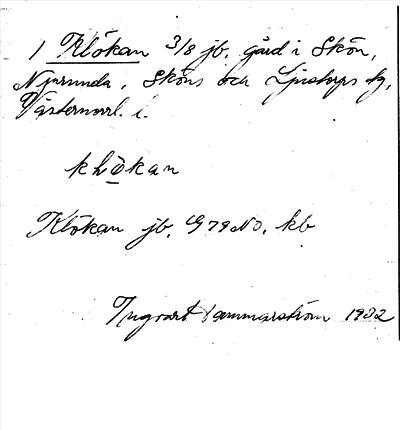 1 Klökan 3/8 jb. gård i Skön,
Njurunda, Sköns och Ljustorps tg,
Västernorrl. l.
klökan
Klökan jb. G 79 NO, kb
Ingvart Hammarström 1932